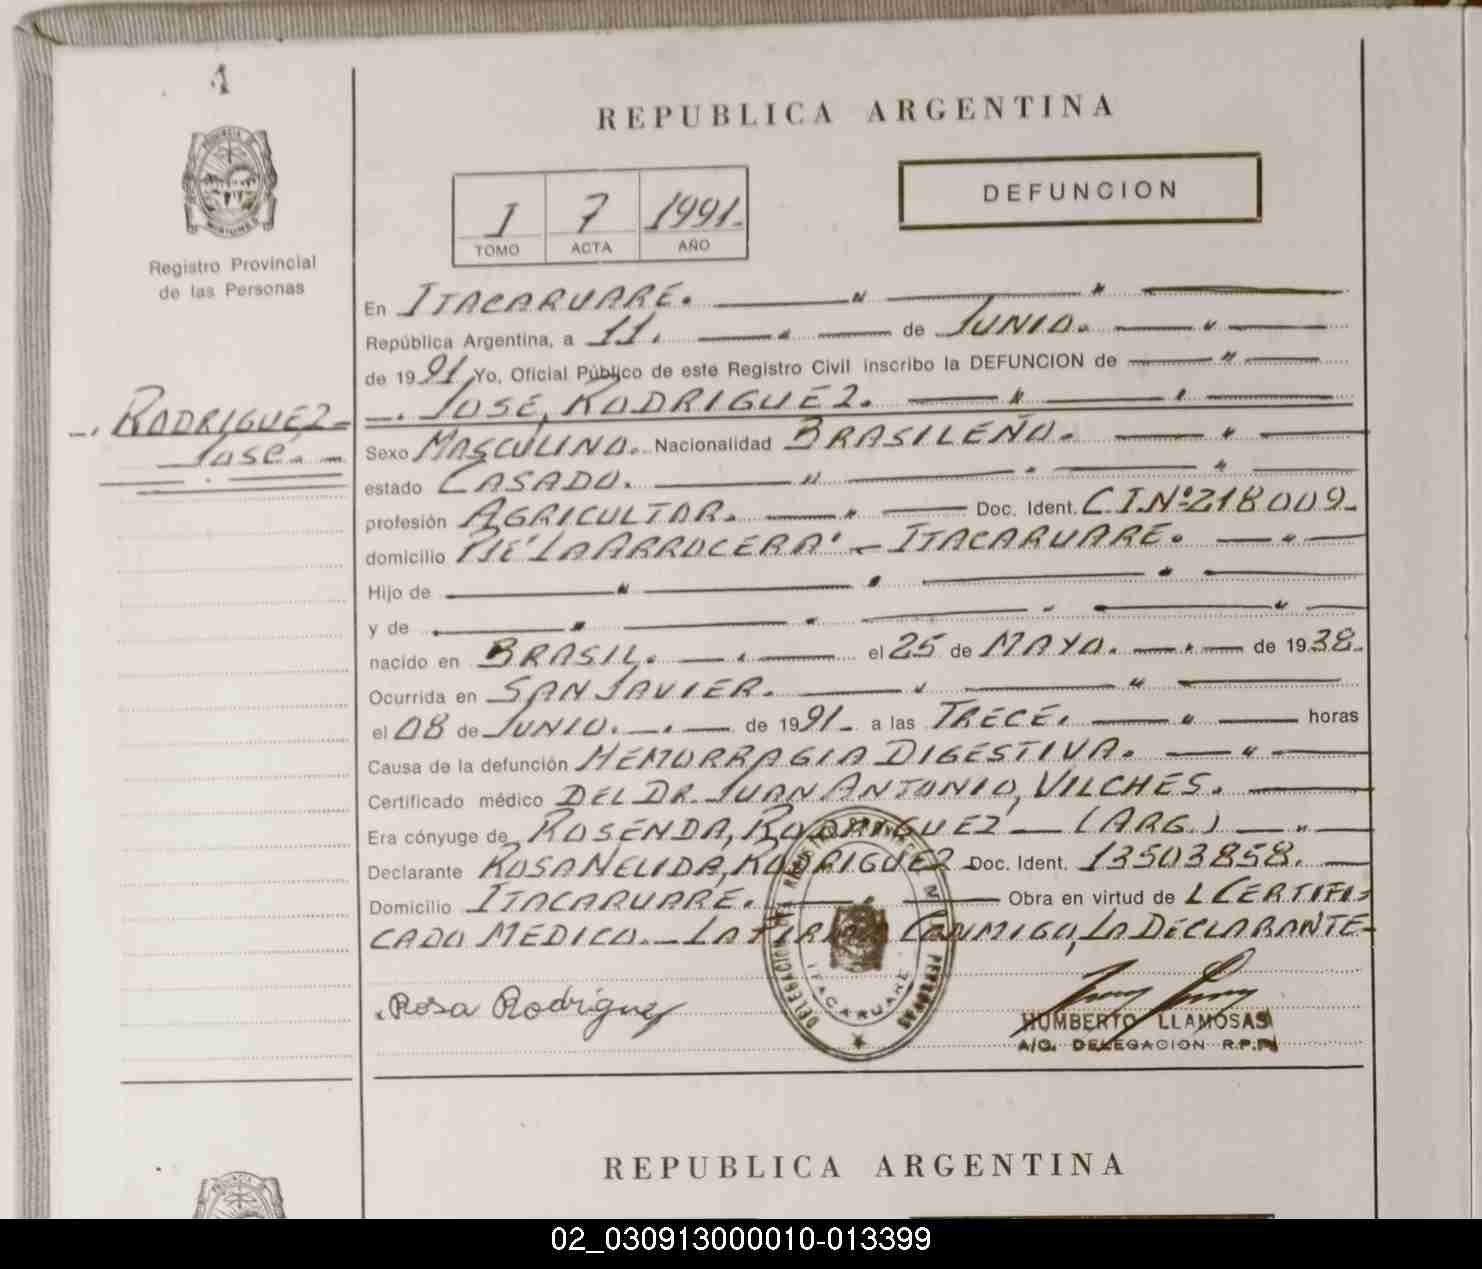 1
REPUBLICA ARGENTINA
DEFUNCION
I 7 1991.
TOMO ACTA AÑO
Registro Provincial
de las Personas
RODRIGUEZ
JOSÉ.
En ITACARUARE.
República Argentina, a 11. de JUNIO.
de 1991 Yo, Oficial Público de este Registro Civil inscribo la DEFUNCION de
JOSÉ, RODRIGUEZ.
Sexo MASCULINO. Nacionalidad BRASILEÑO.
estado CASADO.
profesión AGRICULTOR. Doc. Ident. C.I.Nº218009.
domicilio PJE"LA ARROCERA" - ITACARUARE.
Hijo de
y de
nacido en BRASIL. el 25 de MAYO. de 1938.
Ocurrida en SAN JAVIER.
el 08 de JUNIO. de 1991 a las TRECE. horas
Causa de la defunción HEMORRAGIA DIGESTIVA.
Certificado médico DEL DR. JUAN ANTONIO, VILCHES.
Era cónyuge de ROSENDA, RODRIGUEZ (ARG.)
Declarante ROSA NELIDA, RODRIGUEZ Doc. Ident. 13503858.
Domicilio ITACARUARE. Obra en virtud de L CERTIFI-
CADO MEDICO. LA FIRMA CONMIGO, LA DECLARANTE-
Rosa Rodríguez
ITACARUARE
HUMBERTO LLAMOSAS
A/C. DELEGACION R.P.P.
REPUBLICA ARGENTINA
02_030913000010-013399